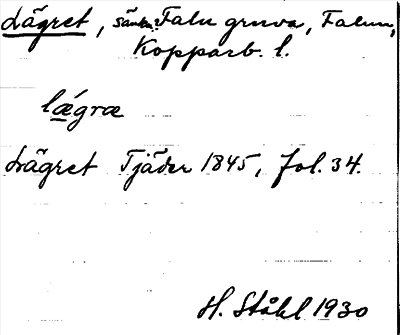 Lägret, sänkn. Falu gruva, Falun,
Kopparb. l.
lǽgræ
Lägret Tjäder 1845, fol. 34.
H. Ståhl 1930